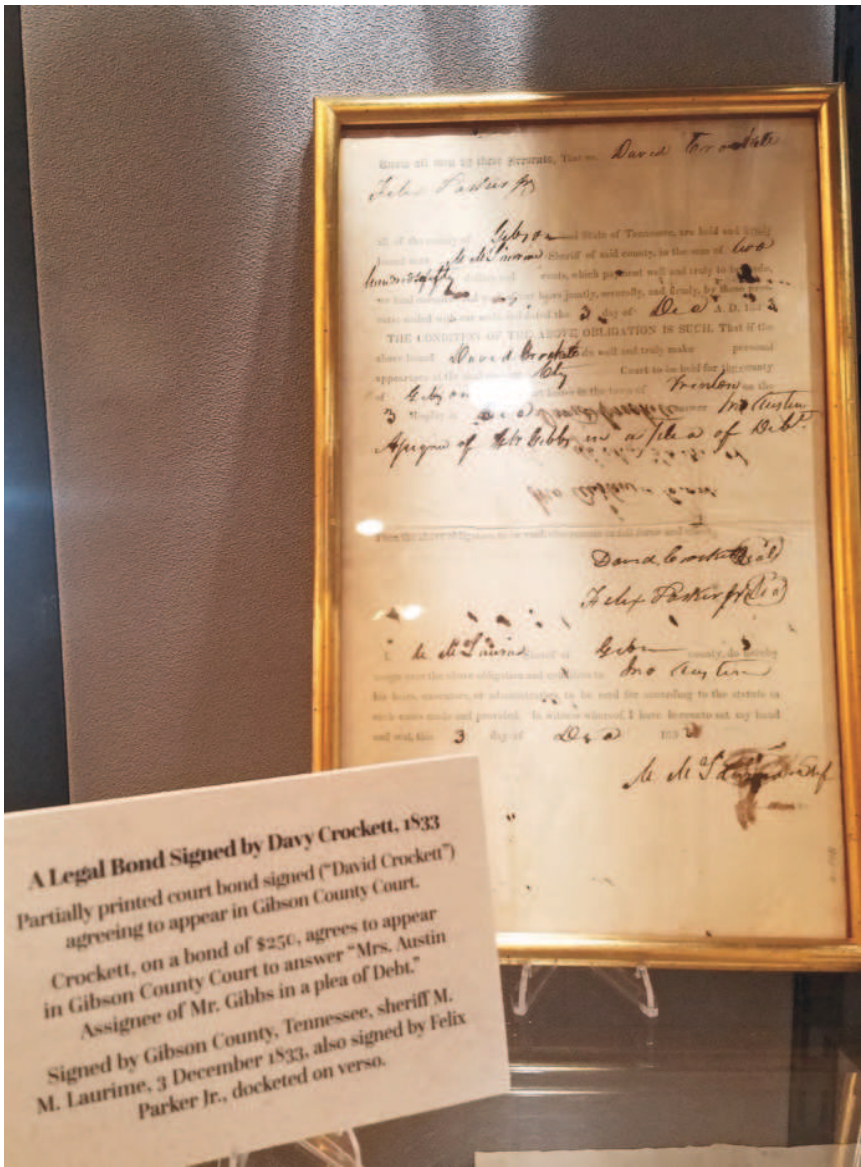 Know all men by these Presents, That we David Crockett
Felix Parker Jr
all of the county of Gibson and State of Tennessee, are held and firmly
bound unto M. M. Sheriff of said county, in the sum of two
hundred fifty dollars and cents, which payment well and truly to be
we bind jointly, severally, and firmly, by these
sealed with our seals, and dated the 3 day of Dec A. D. 183
THE CONDITION OF THE ABOVE OBLIGATION IS SUCH, That if the
above bound David Crockett do well and truly make personal
appearance at the Court to be held for the county
of Gibson in the town of Trenton on the
3 Monday in answer Austin
of Gibbs in a plea of Debt.
Then the above obligation to be void, otherwise to remain in full force and
David Crockett
Felix Parker Jr
I, M. M. Sheriff of Gibson county, do hereby
assign over the above obligation and condition to Austin
his heirs, executors, or administrators, to be sued for according to the statute in
such cases made and provided. In witness whereof, I have hereunto set my hand
and seal, this 3 day of Dec 183
M. M.
A Legal Bond Signed by Davy Crockett, 1833
Partially printed court bond signed (“David Crockett”)
agreeing to appear in Gibson County Court.
Crockett, on a bond of $250, agrees to appear
in Gibson County Court to answer “Mrs. Austin
Assignee of Mr. Gibbs in a plea of Debt.”
Signed by Gibson County, Tennessee, sheriff M.
M. Laurime, 3 December 1833, also signed by Felix
Parker Jr., docketed on verso.